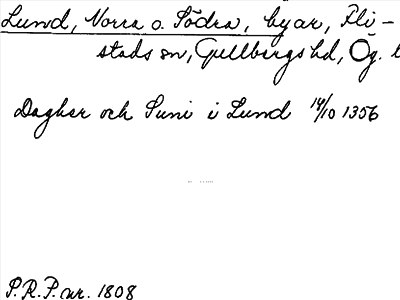 Lund, Norra o. Södra, byar, Fli-
stads sn, Gullbergs hd, Ög. l
Dagher och Suni i Lund 14/10 1356
P.R.P. nr. 1808